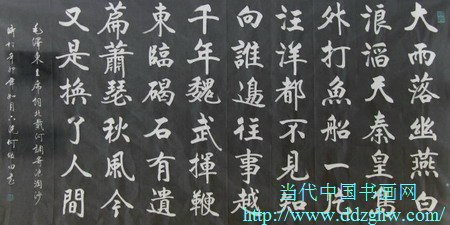 大雨落幽燕白
浪滔天秦皇島
外打魚船一片
汪洋都不見知
向誰邊往事越
千年魏武揮鞭
東臨碣石有遺
篇蕭瑟秋風今
又是換了人間
毛澤東主席詞北戴河調寄浪淘沙
当代中国书画网
http://www.ddzghw.com/